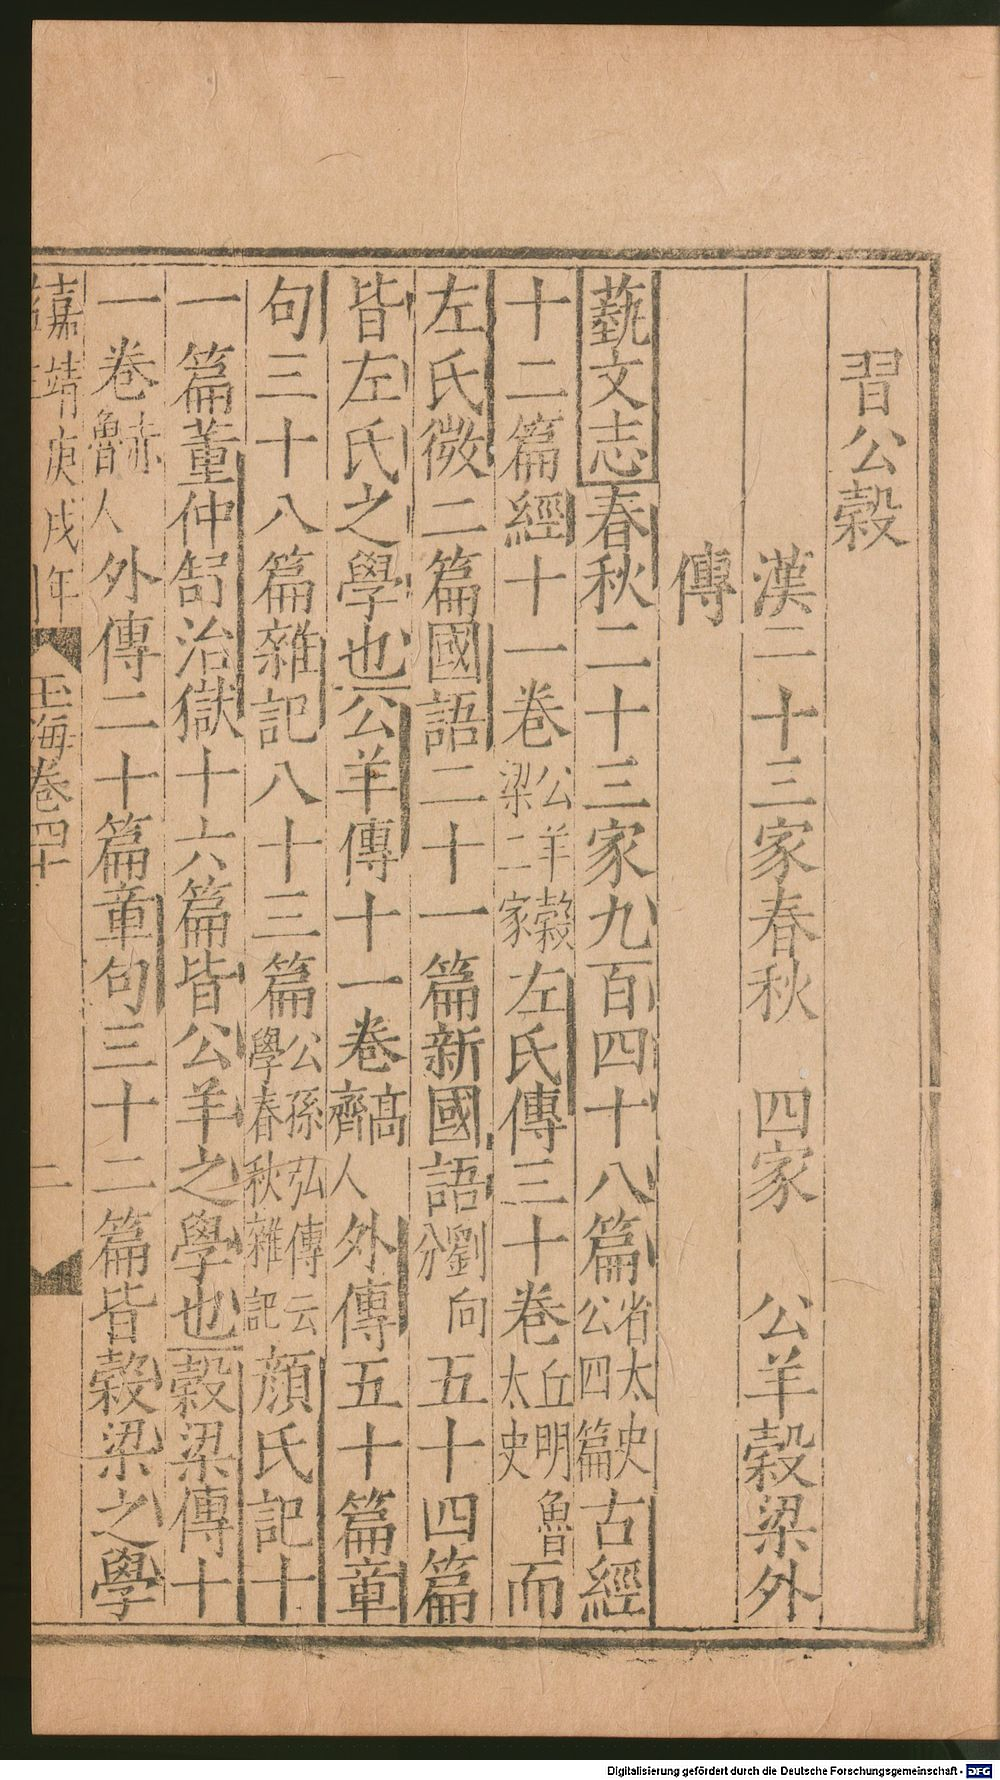 習公穀
漢二十三家春秋　四家　公羊穀梁外
傳
藝文志春秋二十三家九百四十八篇省太史公四篇古經
十二篇經十一卷公羊穀梁二家左氏傳三十卷丘明魯太史而
左氏微二篇國語二十一篇新國語劉向分五十四篇
皆左氏之學也公羊傳十一卷高齊人外傳五十篇章
句三十八篇雜記八十三篇公孫弘傳云學春秋雜記顔氏記十
一篇董仲舒治獄十六篇皆公羊之學也穀梁傳十
一卷赤魯人外傳二十篇章句三十二篇皆穀梁之學
嘉靖庚戌年
玉海卷四十
二
Digitalisierung gefördert durch die Deutsche Forschungsgemeinschaft - DFG